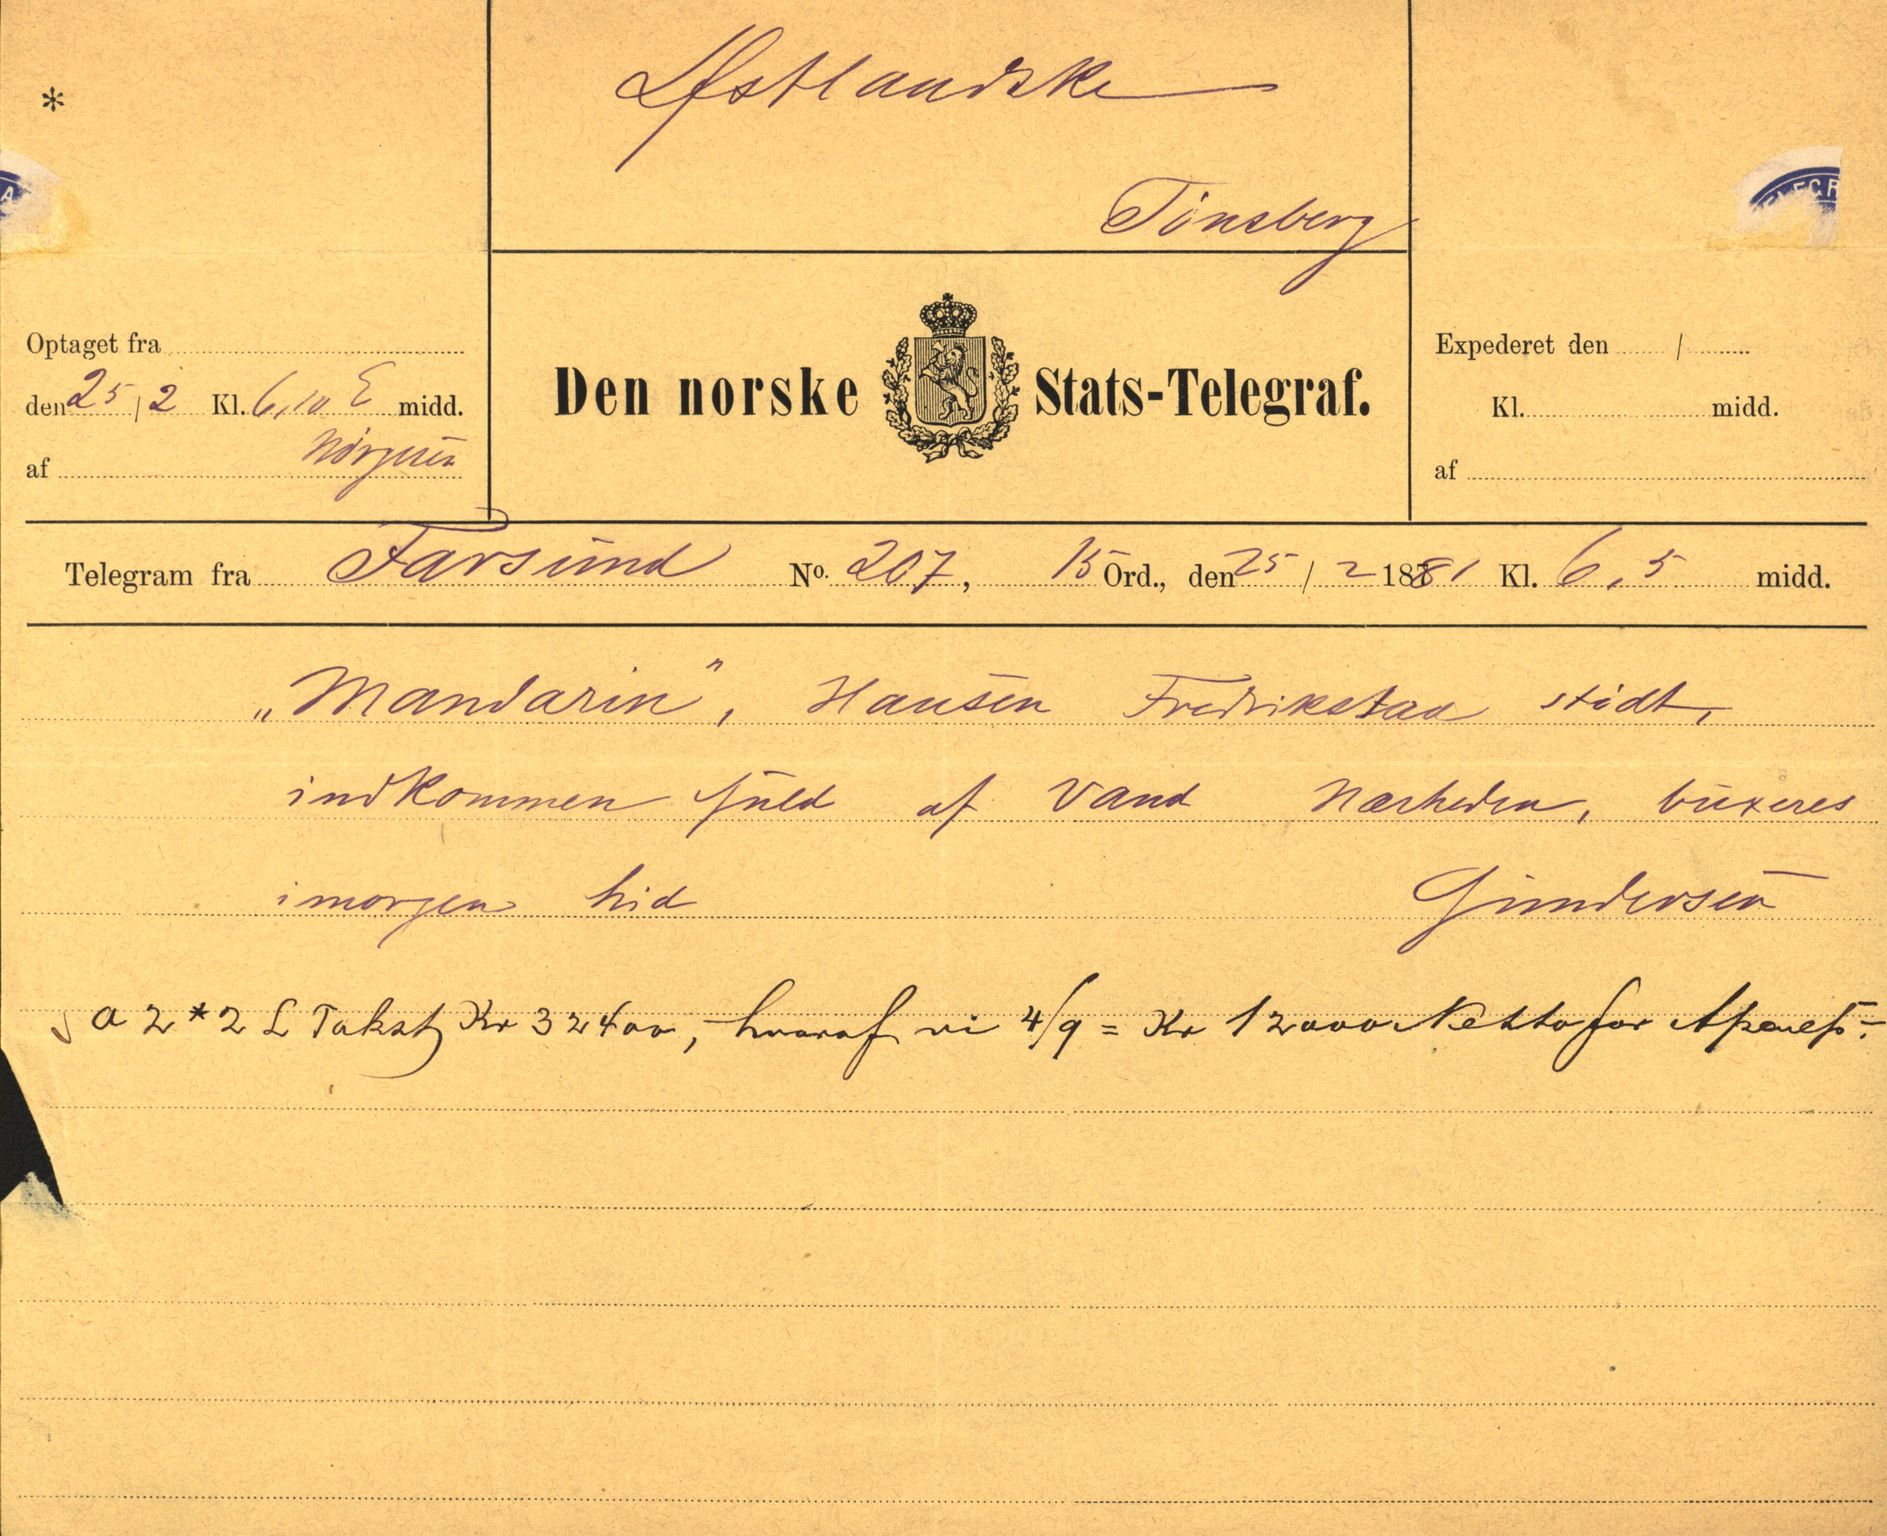 *
Østlandske
Tönsberg
TELEGR
A
Optaget fra
den 25/2 Kl. 6,10 E midd.
af
Den norske Stats-Telegraf.
Expederet den /
Kl. midd.
af
Telegram fra Farsund No. 207, 15 Ord., den 25/2 1881 Kl. 6,5 midd.
„Mandarin", Hansen Fredrikstad stödt,
indkommen fuld af Vand Nærheden, buxeres
imorgen hid Gundersen
a 2 * 2 L Takst Kr 32400, hvoraf vi 4/9 = Kr 12000 Netto for